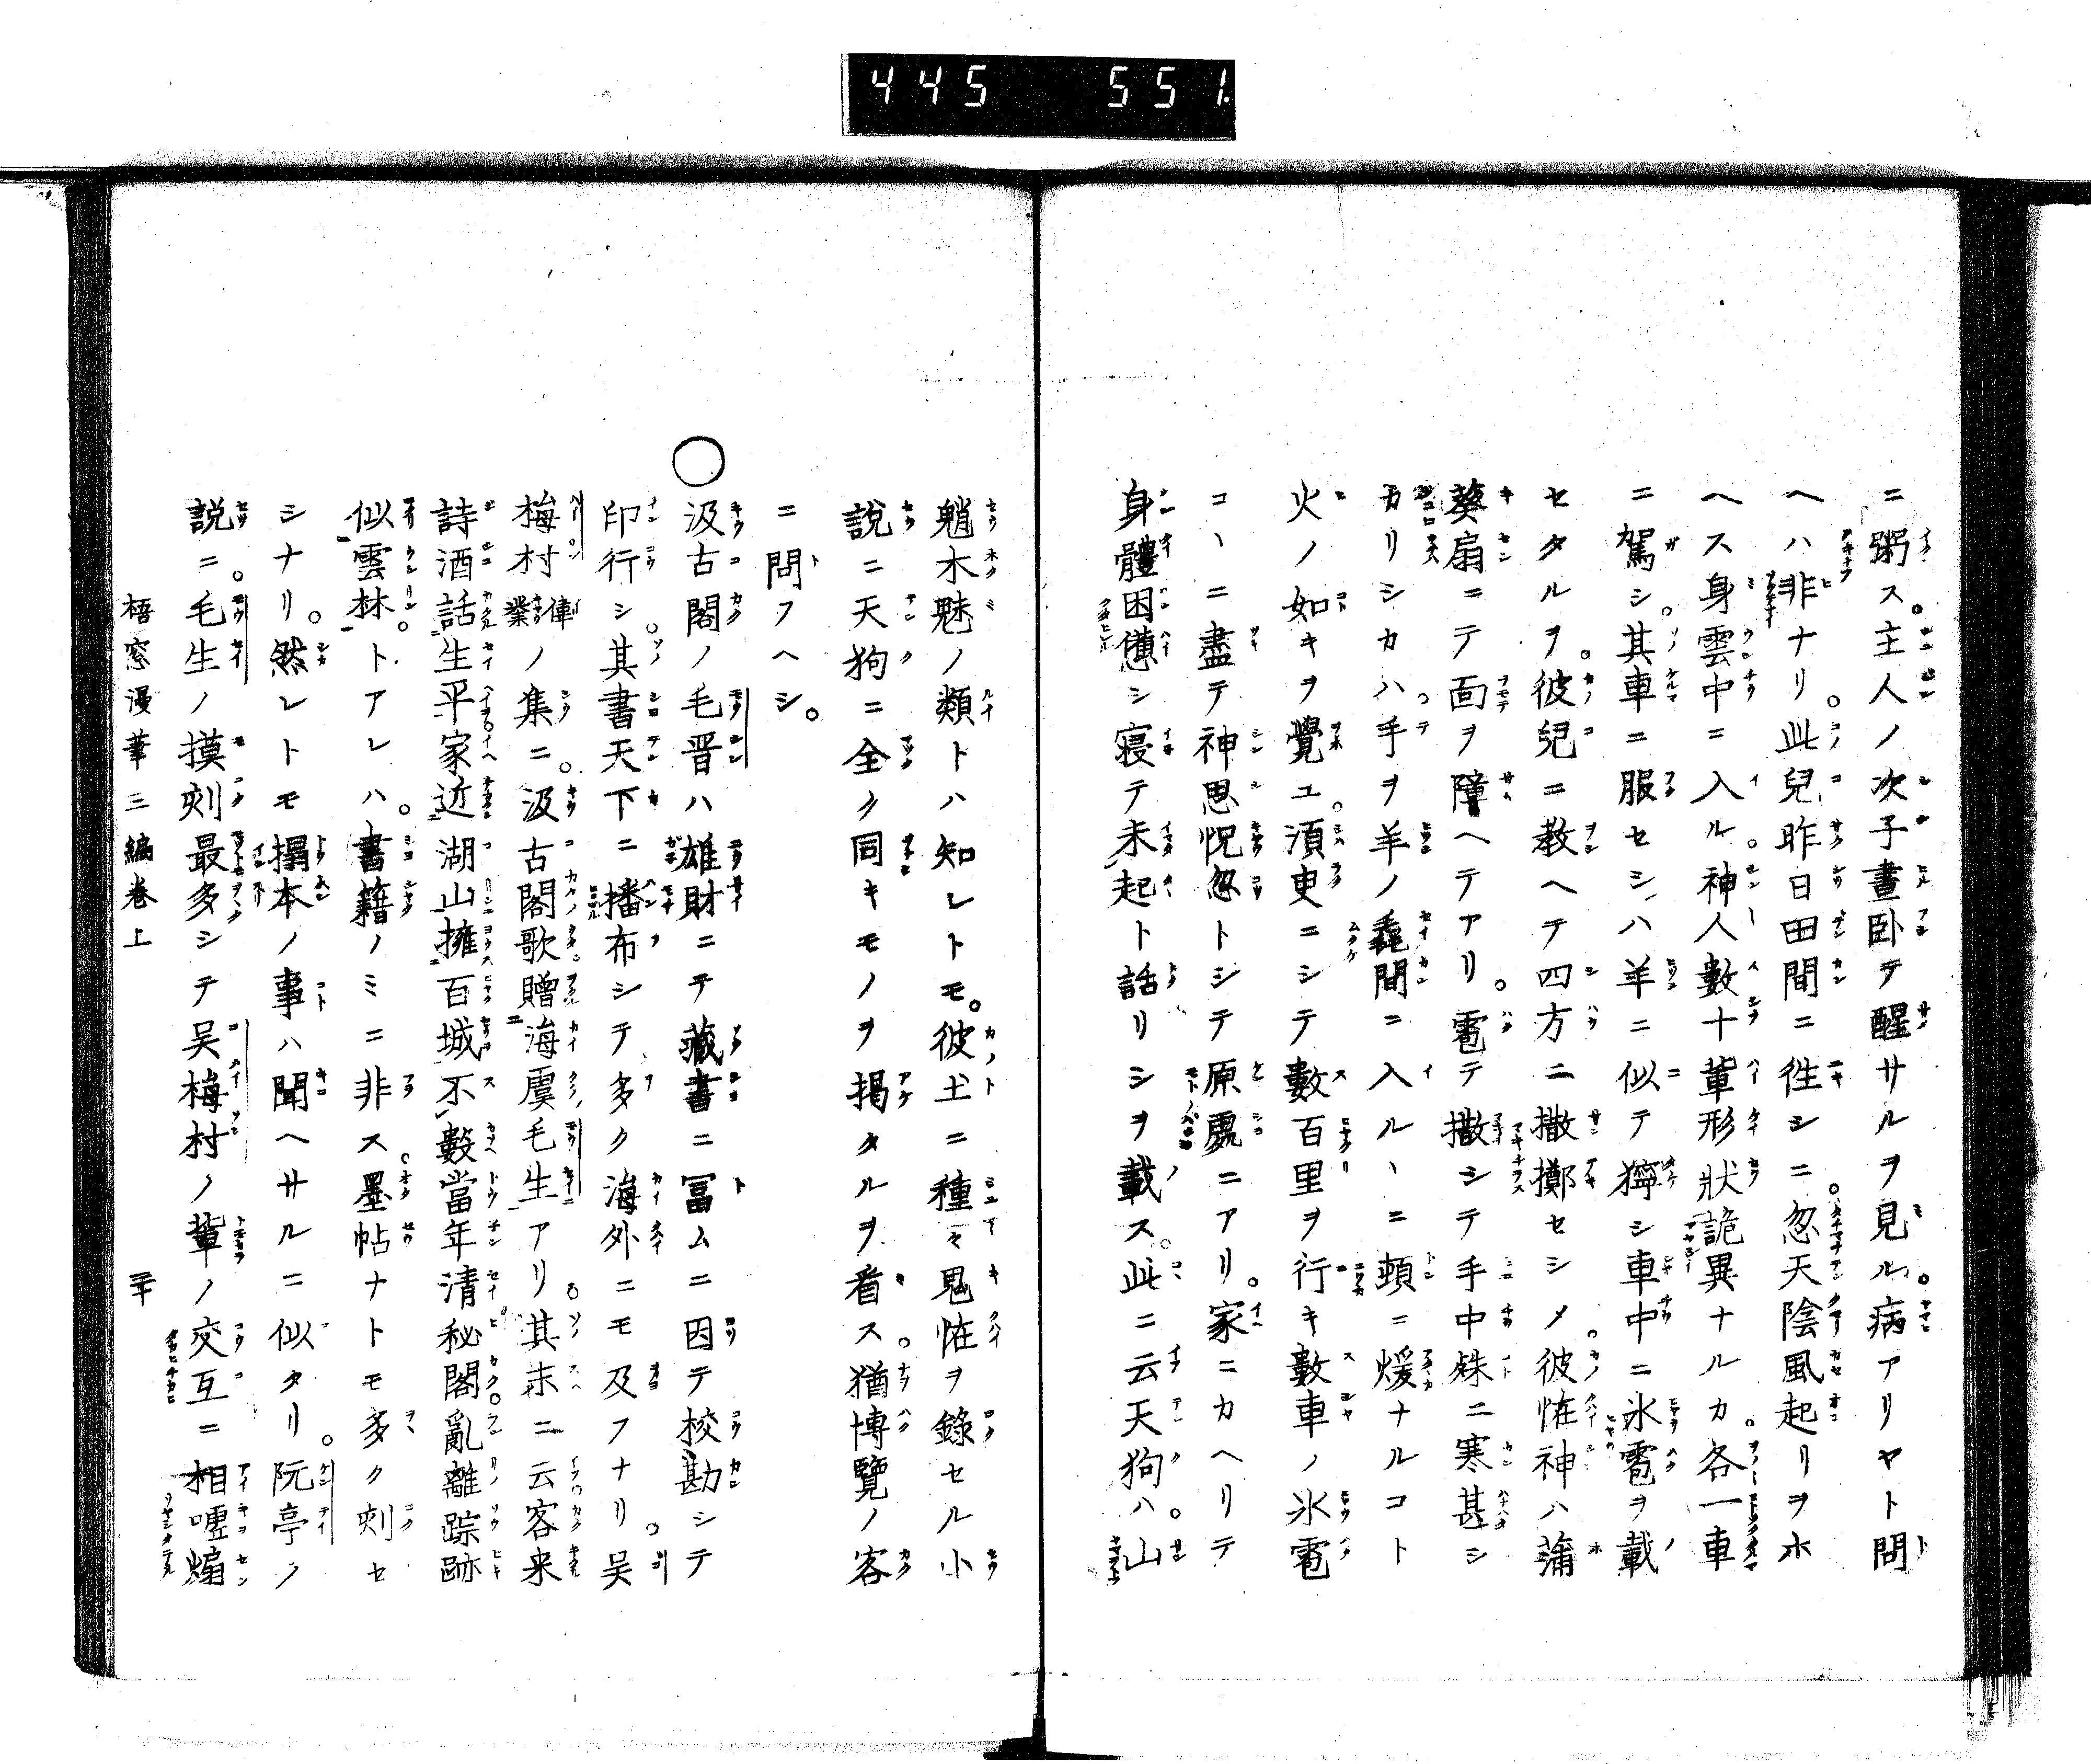 445 551.
ニ粥ス。主人ノ次子晝卧テ醒サルヲ見ル。病アリヤト問
ヘハ非ナリ。此兒昨日田間ニ徃シニ。忽天陰風起リヲホ
ヘス身雲中ニ入ル。神人數十輩形狀詭異ナルカ。各一車
ニ駕シ。其車ニ服セシハ羊ニ似テ獰シ車中ニ氷雹ヲ載
セタルヲ。彼兒ニ教ヘテ四方ニ撒擲セシメ。彼恠神ハ蒲
葵扇ニテ面ヲ障ヘテアリ。雹テ撒シテ手中殊ニ寒甚シ
カリシカハ。手ヲ羊ノ毳間ニ入ルヽニ頓ニ煖ナルコト
火ノ如キヲ覺ユ。須臾ニシテ數百里ヲ行キ數車ノ氷雹
コヽニ盡テ神思怳忽トシテ原處ニアリ。家ニカヘリテ
身體困憊シ寢テ未起ト話リシヲ載ス。此ニ云天狗ハ。山
魈木魅ノ類トハ知レトモ。彼土ニ種々鬼恠ヲ錄セル小
說ニ天狗ニ全ク同キモノヲ掲タルヲ看ス。猶博覽ノ客
ニ問フヘシ。
○汲古閣ノ毛晋ハ雄財ニテ藏書ニ冨ムニ因テ校勘シテ
印行シ。其書天下ニ播布シテ多ク海外ニモ及フナリ。吴
梅村偉業ノ集ニ。汲古閣歌贈海虞毛生アリ。其末ニ云客来
詩酒話生平家近湖山擁百城不數當年清秘閣亂離踪跡
似雲林。トアレハ。書籍ノミニ非ス。墨帖ナトモ多ク刻セ
シナリ。然レトモ搨本ノ事ハ聞ヘサルニ似タリ。阮亭ノ
説ニ。毛生ノ摸刻最多シテ吴梅村ノ輩ノ交互ニ相嘘煽
梧窓漫筆三編卷上 三十